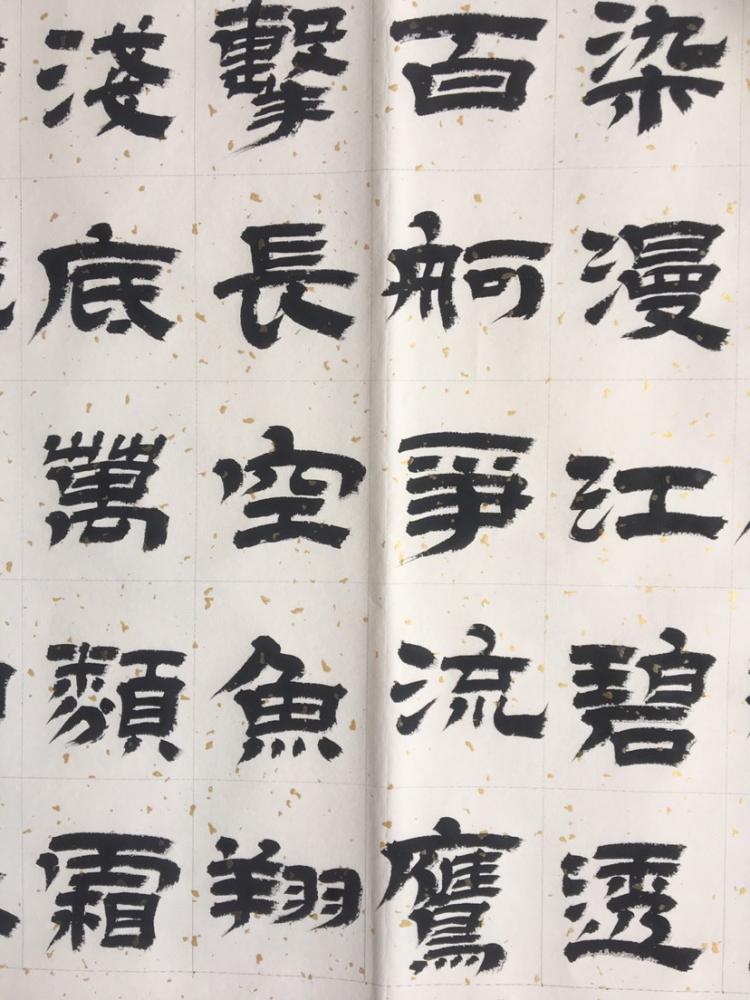 染漫江碧透
百舸爭流鷹
擊長空魚翔
淺底萬類霜